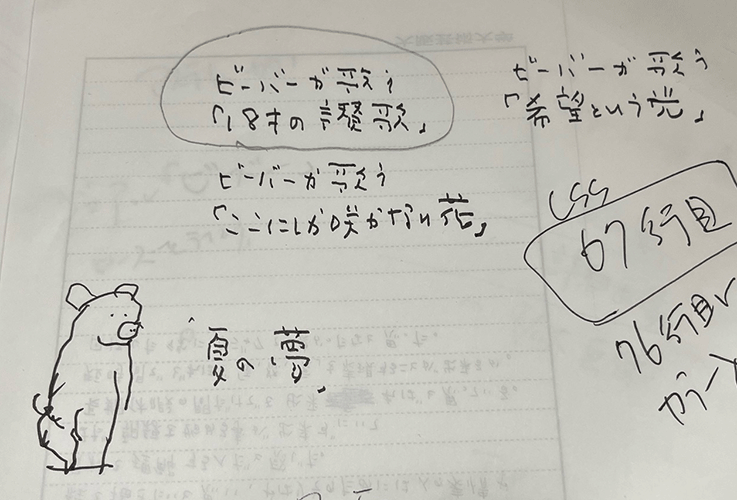 ビーバーが歌う
「18才の讃歌」
ビーバーが歌う
「希望という光」
ビーバーが歌う
「ここにしか咲かない花」
CSS
67行目
76行目
「夏の夢」